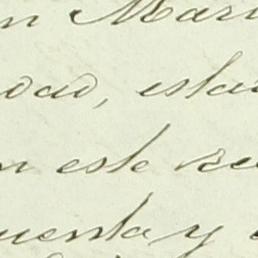 n Mari
dad, esta
n este re
uenta y